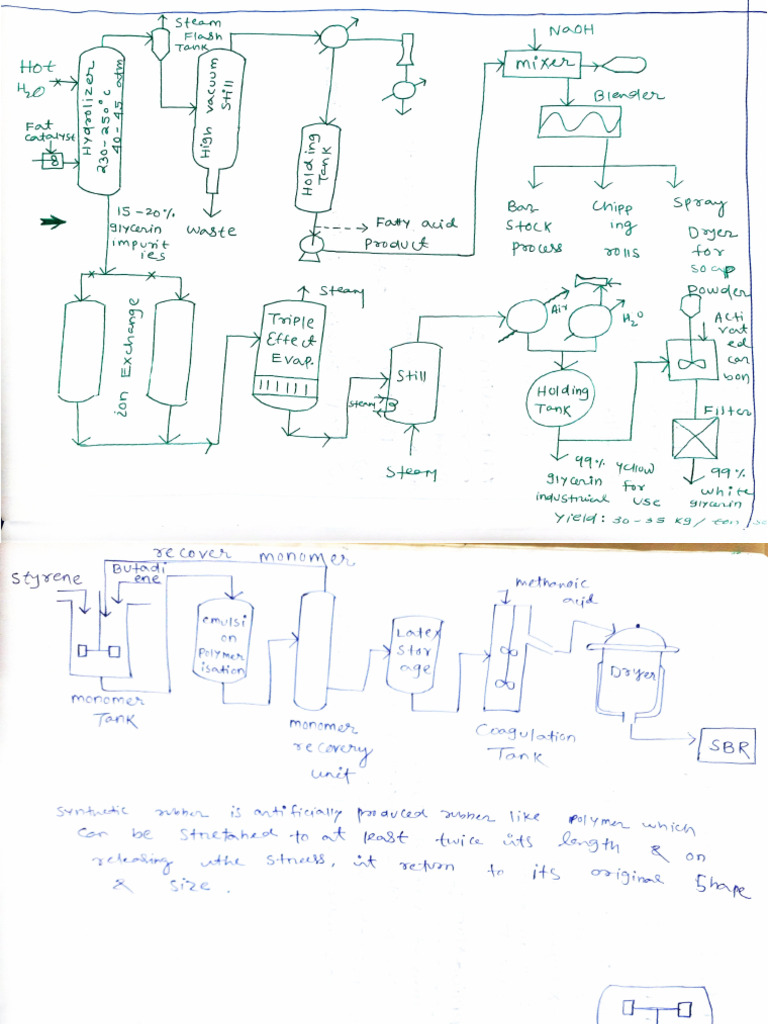 Steam
Flash
Tank
Hot
H2O
Hydrolizer
230-250°C
40-45 atm
Fat
catalyst
High vacuum
Still
Waste
15-20%
glycerin
impurit
ies
Holding
Tank
Fatty acid
Product
NaOH
mixer
Blender
Bar
Stock
Process
Chipp
ing
rolls
Spray
Dryer
for
soap
Powder
ion Exchange
Steam
Triple
Effect
Evap.
Still
steam
Steam
Air
H2O
Holding
Tank
99% yellow
glycerin for
industrial use
Acti
vat
ed
car
bon
Filter
99%
white
glycerin
Yield: 30-35 kg/
recover monomer
Styrene
Butadi
ene
monomer
Tank
emulsi
on
polymer
isation
monomer
recovery
unit
Latex
Stor
age
methanoic
acid
Coagulation
Tank
Dryer
SBR
Synthetic rubber is artificially produced rubber like polymer which
can be stretahed to at least twice its length & on
releasing the stress, it return to its original shape
& size.